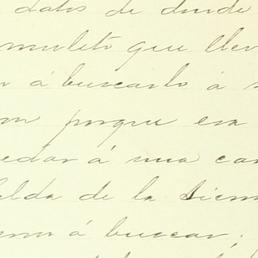 datos de donde
mulito que llev
á buscarlo á
porque era
edar á una ca
alda de la Sierr
á buscar;